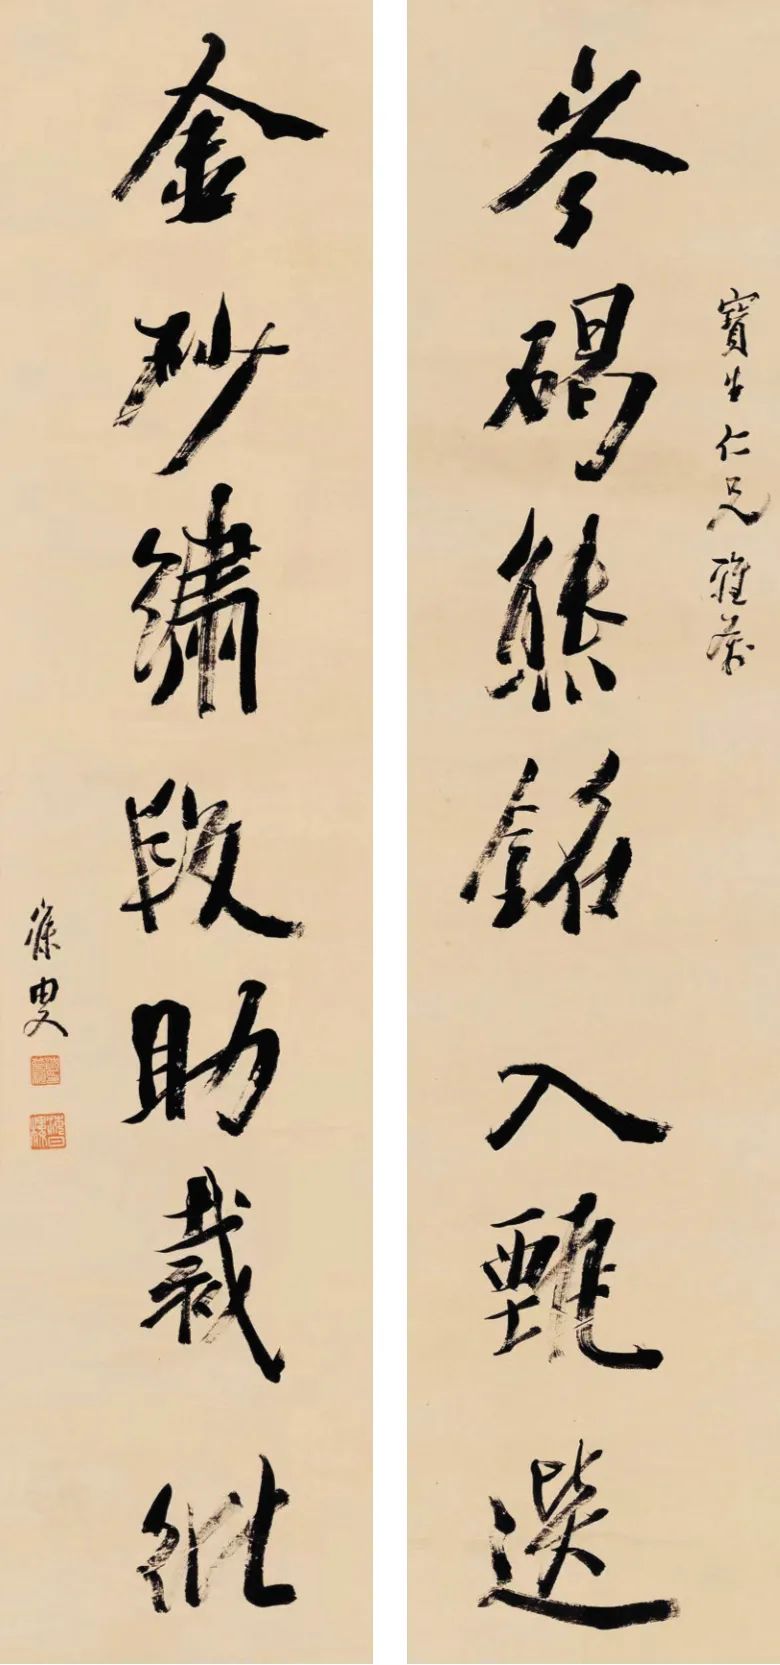 寶生仁兄雅
岑碣熊銘入甄選
金砂繡段助裁紕
寐叟